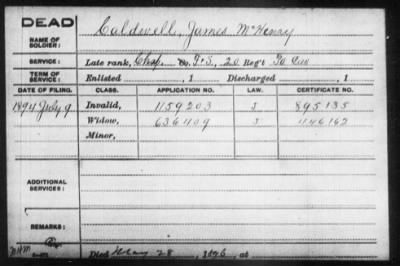 DEAD
NAME OF SOLDIER: Caldwell, James McHenry
SERVICE: Late rank, Chap., Co. F.S., 20 Reg't Ia Cav
TERM OF SERVICE: Enlisted , 1 Discharged , 1
DATE OF FILING. CLASS. APPLICATION NO. LAW. CERTIFICATE NO.
1894 July 9 Invalid, 1159203 J 895135
Widow, 636409 J 446162
Minor,
ADDITIONAL SERVICES:
REMARKS:
Died May 28 , 1896, at